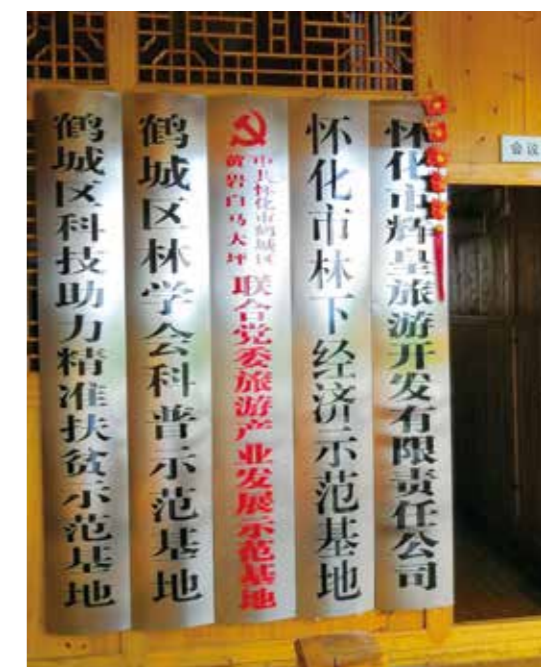 鹤城区科技助力精准扶贫示范基地
鹤城区林学会科普示范基地
中共怀化市鹤城区
黄岩白马大坪
联合党委旅游产业发展示范基地
怀化市林下经济示范基地
怀化市辉呈旅游开发有限责任公司
会议